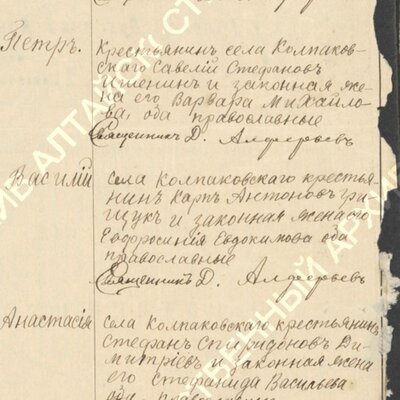 Петръ.
Крестьянинъ села Колпаков-
скаго Савелій Стефановъ
и законная же-
на его Варвара Михайло-
ва, оба православные
Священникъ Д. Алферьевъ
Василій
села Колпаковскаго кресть-
янинъ Карпъ Антоновъ Гри-
щукъ и законная жена его
Евфросинія Евдокимова оба
православные
Священникъ Д. Алферьевъ
Анастасія
села Колпаковскаго крестьянинъ
Стефанъ Спиридоновъ Ди-
митріевъ и законная жена
его Стефанида Васильева
оба православн